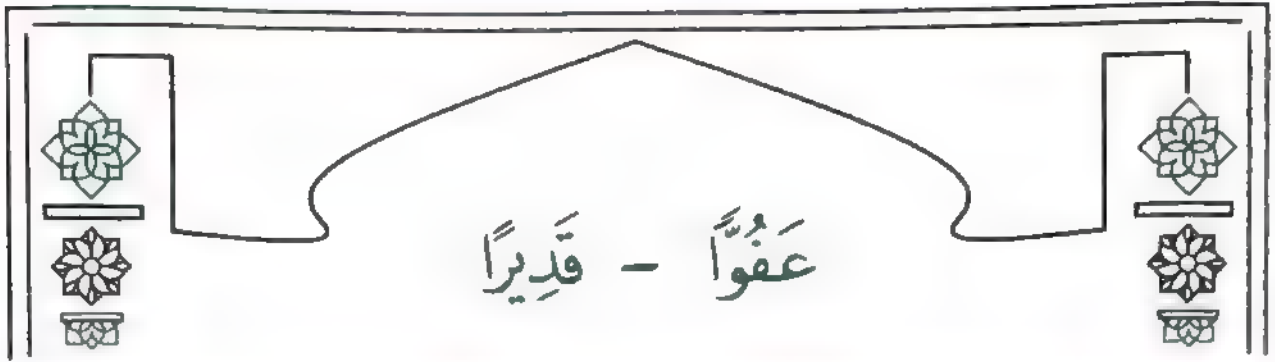 عَفُوًّا – قَدِيرًا